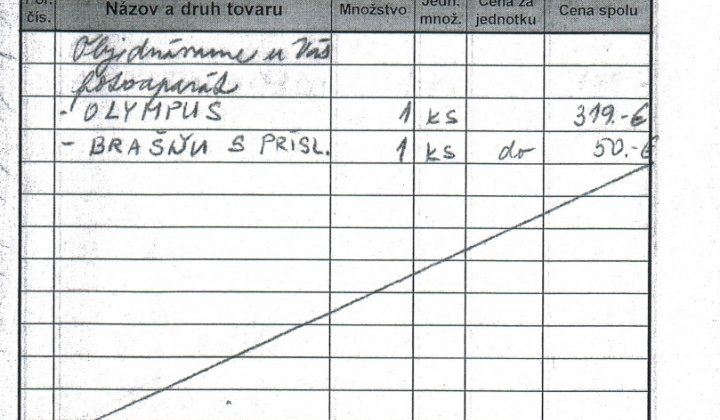 Por. čís. Názov a druh tovaru Množstvo Jedn. množ. Cena za jednotku Cena spolu
Objednávame u Vás
fotoaparát
- OLYMPUS 1 ks 319.-€
- BRAŠŇU S PRÍSL. 1 ks do 50.-€